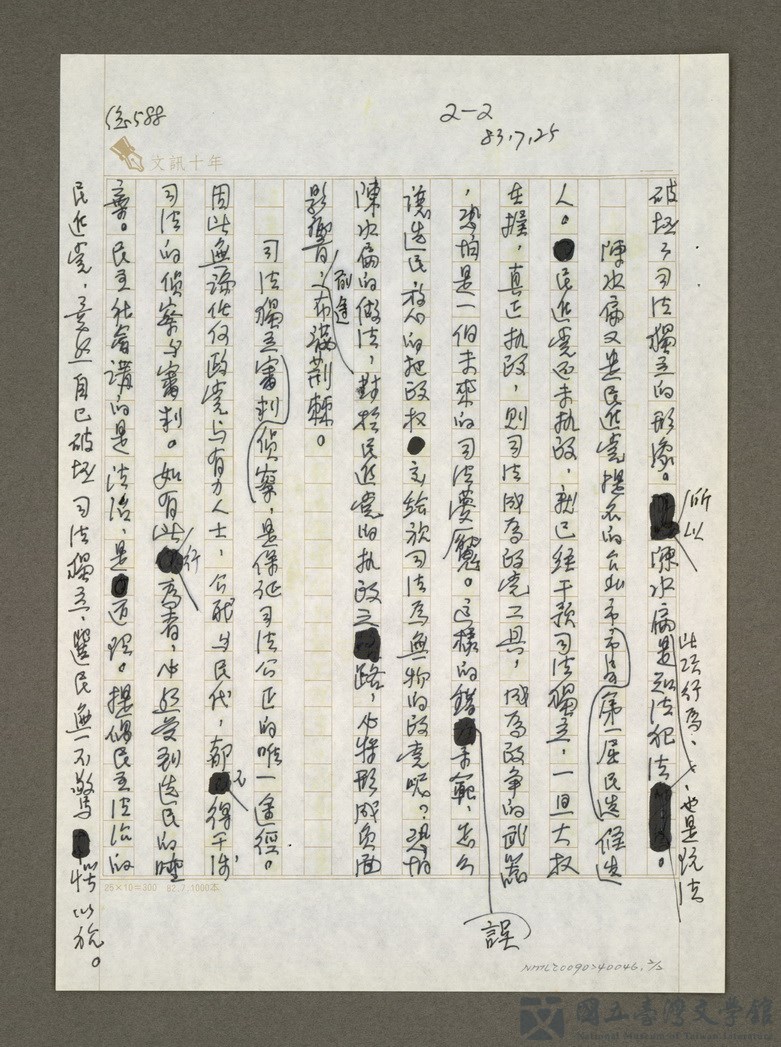 总588
2-2
83.7.25
文訊十年
破坏了司法獨立的形象。所以陳水扁是知法犯法
此項行為、也是玩法
陳水扁又是民進党提名的台北市市長第一屆民選候選
人。民進党还未执政，就已経干預司法獨立，一旦大权
在握，真正执政，則司法成為政党工具，成為政爭的武器
，恐怕是一個未來的司法夢魘。這樣的錯誤示範，怎么
讓选民放心的把政权交給視司法為無物的政党呢？恐怕
陳水扁的做法，對於民進党的执政之路，必将形成负面
影響，前途布滿荆棘。
司法獨立審判偵察，是保証司法公正的唯一途徑。
因此無論任何政党与有力人士，公職与民代，都不得干涉
司法的偵察与審判。如有此行為者，必然受到选民的唾
棄。民主社會講的是法治，是道理。提倡民主法治的
民進党，竟然自己破坏司法獨立，選民無不驚惜以
25×10=300 82.7.1000本
NMTL20090240046, 2/2
國立臺灣文學館
National Museum of Taiwan Literature